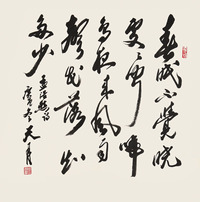 春眠不觉晓
处处闻啼
鸟夜来风雨
声花落知
多少
孟浩然诗